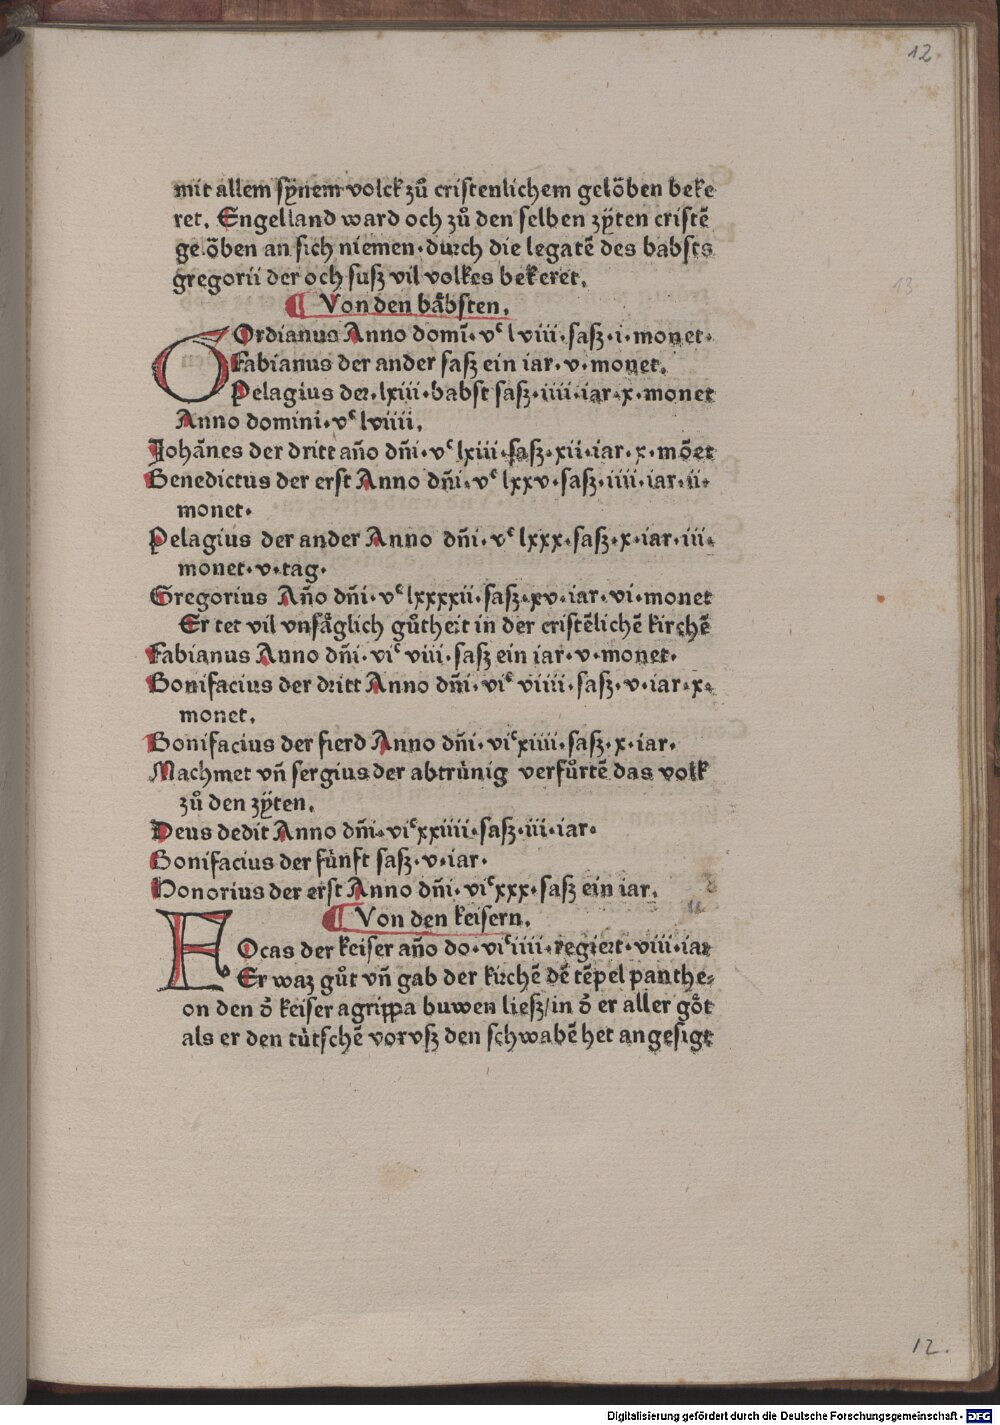 12
mit allem sÿnem volck zů cristenlichem gelŏben beke
ret. Engelland ward och zů den selben zÿten cristē
gelŏben an sich niemen·durch die legatē des babsts
gregorii der och susz vil volkes bekeret.
¶ Von den båbsten.
GOrdianus Anno domī·vᶜ lviii·sasz·i·monet·
Fabianus der ander sasz ein iar·v·monet.
Pelagius der·lxiii·babst sasz·iiii·iar·x·monet
Anno domini·vᶜ lviiii.
Johānes der dritt año dn̄i·vᶜ lxiii·sasz·xii·iar·x·mōet
Benedictus der erst Anno dn̄i·vᶜ lxxv·sasz·iiii·iar·ii·
monet·
Pelagius der ander Anno dn̄i·vᶜ lxxx·sasz·x·iar·iii·
monet·v·tag·
Gregorius Año dn̄i·vᶜ lxxxxii·sasz·xv·iar·vi·monet
Er tet vil vnsåglich gůtheit in der cristēlichē kirchē
Fabianus Anno dn̄i·viᶜ viii·sasz ein iar·v·monet·
Bonifacius der dritt Anno dn̄i·viᶜ viiii·sasz·v·iar·x·
monet.
Bonifacius der fierd Anno dn̄i·viᶜxiiii·sasz·x·iar·
Machmet vn̄ sergius der abtrùnig verfůrtē das volk
zů den zÿten.
Deus dedit Anno dn̄i·viᶜxxiiii·sasz·iii·iar·
Bonifacius der fùnft sasz·v·iar·
Honorius der erst Anno dn̄i·viᶜxxx·sasz ein iar.
¶ Von den keisern.
FOcas der keiser año do·viᶜiiii·regiert·viii·iar
Er waz gůt vn̄ gab der kirchē dē tēpel panthe⸗
on den d̄ keiser agrippa buwen liesz/in d̄ er aller gŏt
als er den tùtschē vorvsz den schwabē het angesigt
12.
Digitalisierung gefördert durch die Deutsche Forschungsgemeinschaft - DFG